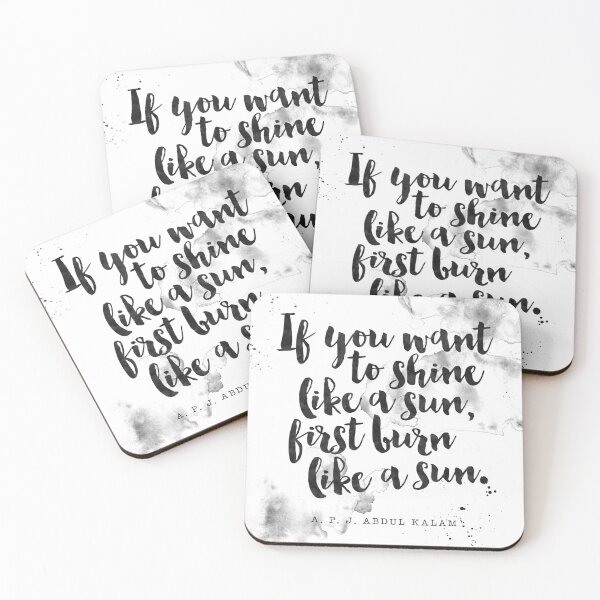 If you want
to shine
like a sun,
burn
If you want
to shine
like a sun,
first burn
like a sun.
If you want
to shine
like a sun,
first burn
like a s
A. P. J. ABDU
If you want
to shine
like a sun,
first burn
like a sun.
A. P. J. ABDUL KALAM